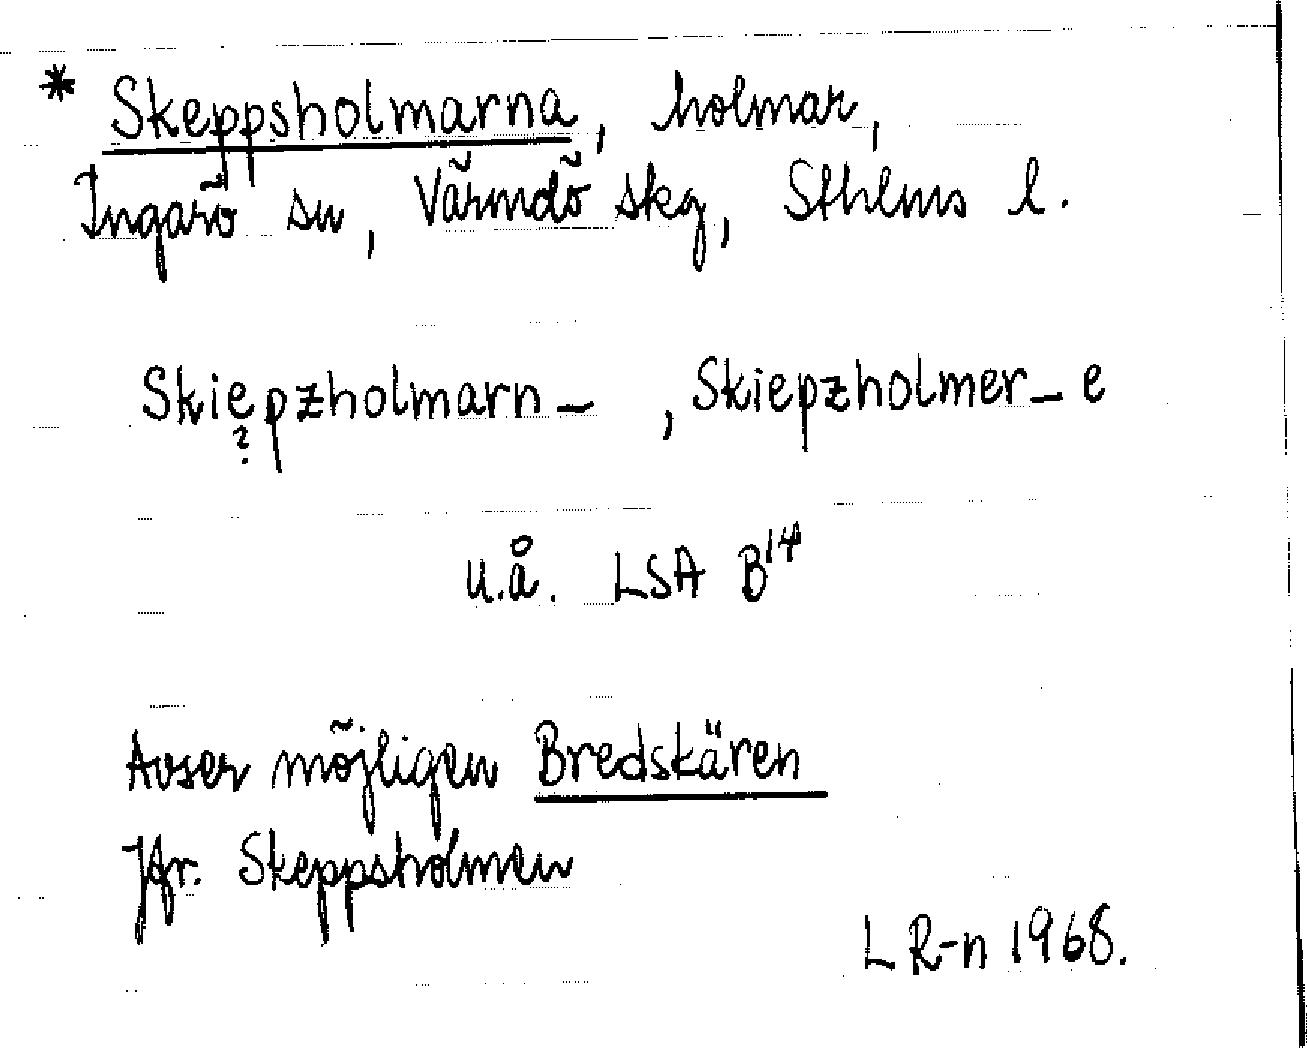 * Skeppsholmarna, holmar,
Ingarö sn, Värmdö skg, Sthlms l.
Skiepzholmarn_ , Skiepzholmer_e
?
u.å. LSA B14
Avser möjligen Bredskären
Jfr. Skeppsholmen
L R-n 1968.